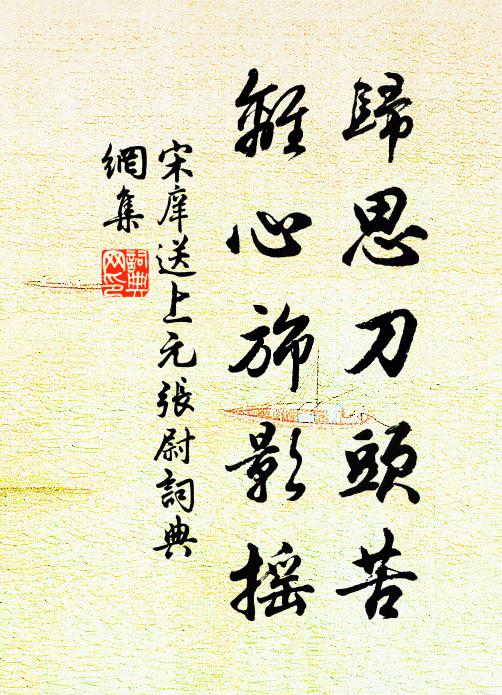 歸思刀頭苦
離心斾影摇
宋庠送上元張尉詞典
網集
詞典
网印